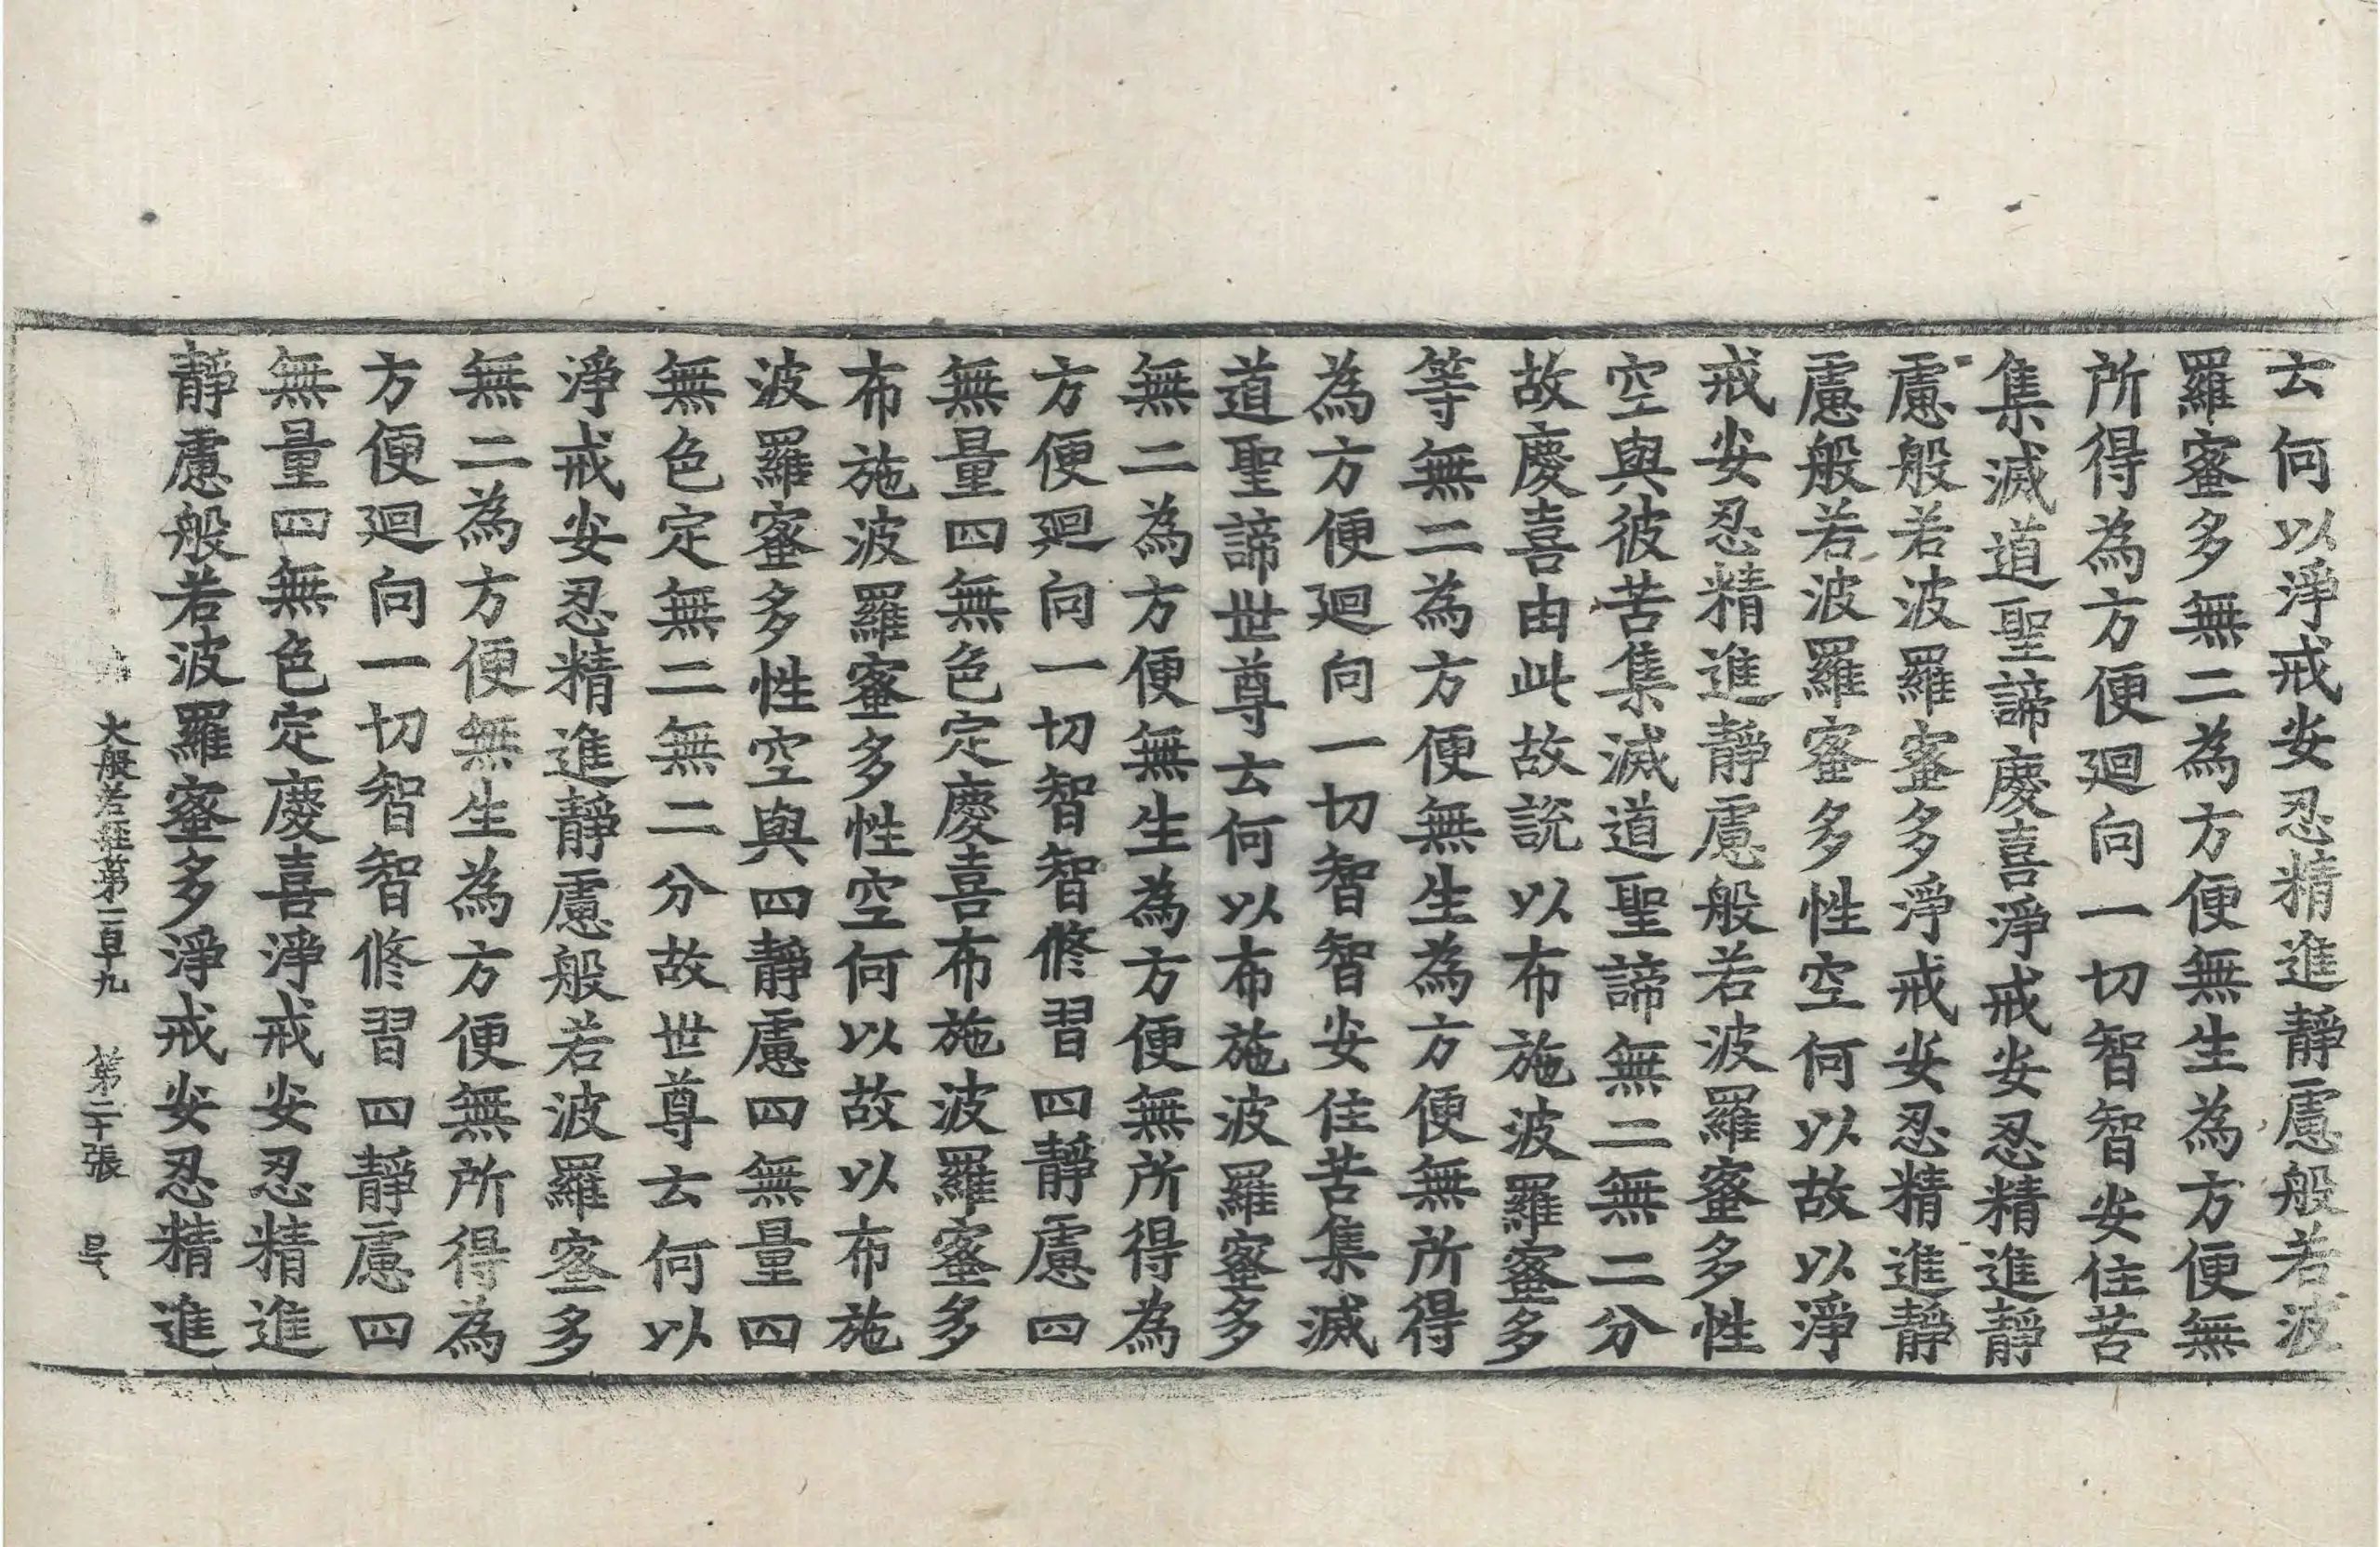 云何以淨戒安忍精進靜慮般若波
羅蜜多無二為方便無生為方便無
所得為方便迴向一切智智安住苦
集滅道聖諦慶喜淨戒安忍精進靜
慮般若波羅蜜多淨戒安忍精進靜
慮般若波羅蜜多性空何以故以淨
戒安忍精進靜慮般若波羅蜜多性
空與彼苦集滅道聖諦無二無二分
故慶喜由此故說以布施波羅蜜多
等無二為方便無生為方便無所得
為方便迴向一切智智安住苦集滅
道聖諦世尊云何以布施波羅蜜多
無二為方便無生為方便無所得為
方便迴向一切智智修習四靜慮四
無量四無色定慶喜布施波羅蜜多
布施波羅蜜多性空何以故以布施
波羅蜜多性空與四靜慮四無量四
無色定無二無二分故世尊云何以
淨戒安忍精進靜慮般若波羅蜜多
無二為方便無生為方便無所得為
方便迴向一切智智修習四靜慮四
無量四無色定慶喜淨戒安忍精進
靜慮般若波羅蜜多淨戒安忍精進
大般若經第一百九 第二十張